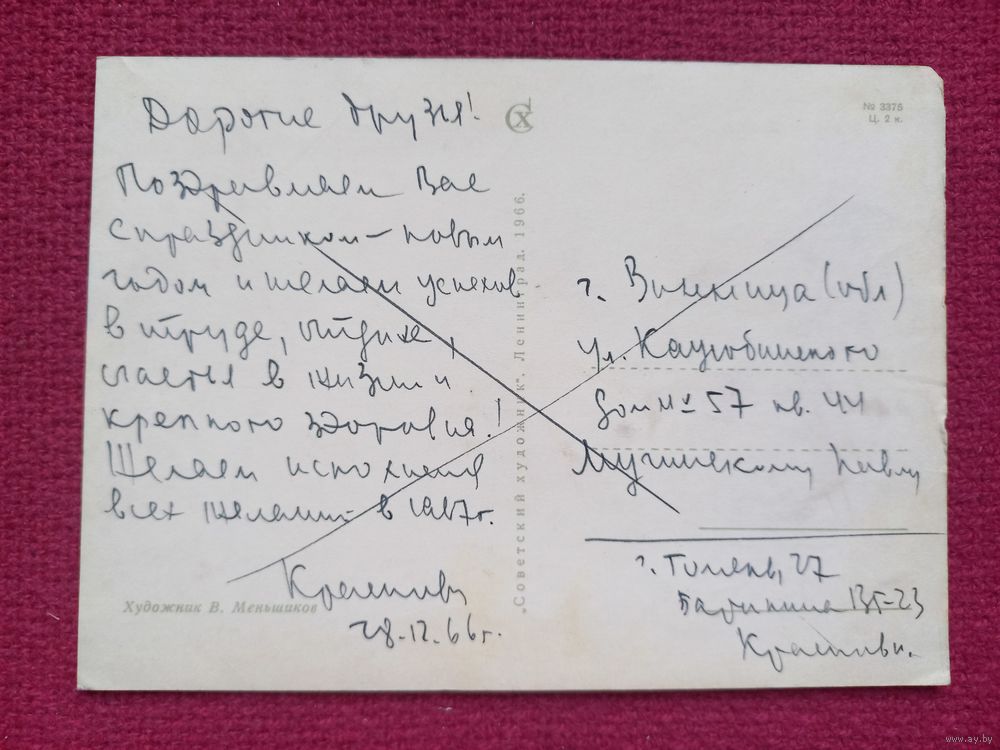 Дорогие друзья!
Поздравляем Вас
с праздником – новым
годом и желаем успехов
в труде, отдыхе,
счастья в жизни и
крепкого здоровья!
Желаем исполнения
всех желаний в 1967г.
28.12.66г.
Художник В. Меньшиков
„Советский художник". Ленинград. 1966.
№ 3375
Ц. 2 к.
г. Винница (обл)
ул. Коцюбинского
дом № 57 кв. 44
Павлу
г. Гомель, 27
13Б-23
www.ay.by